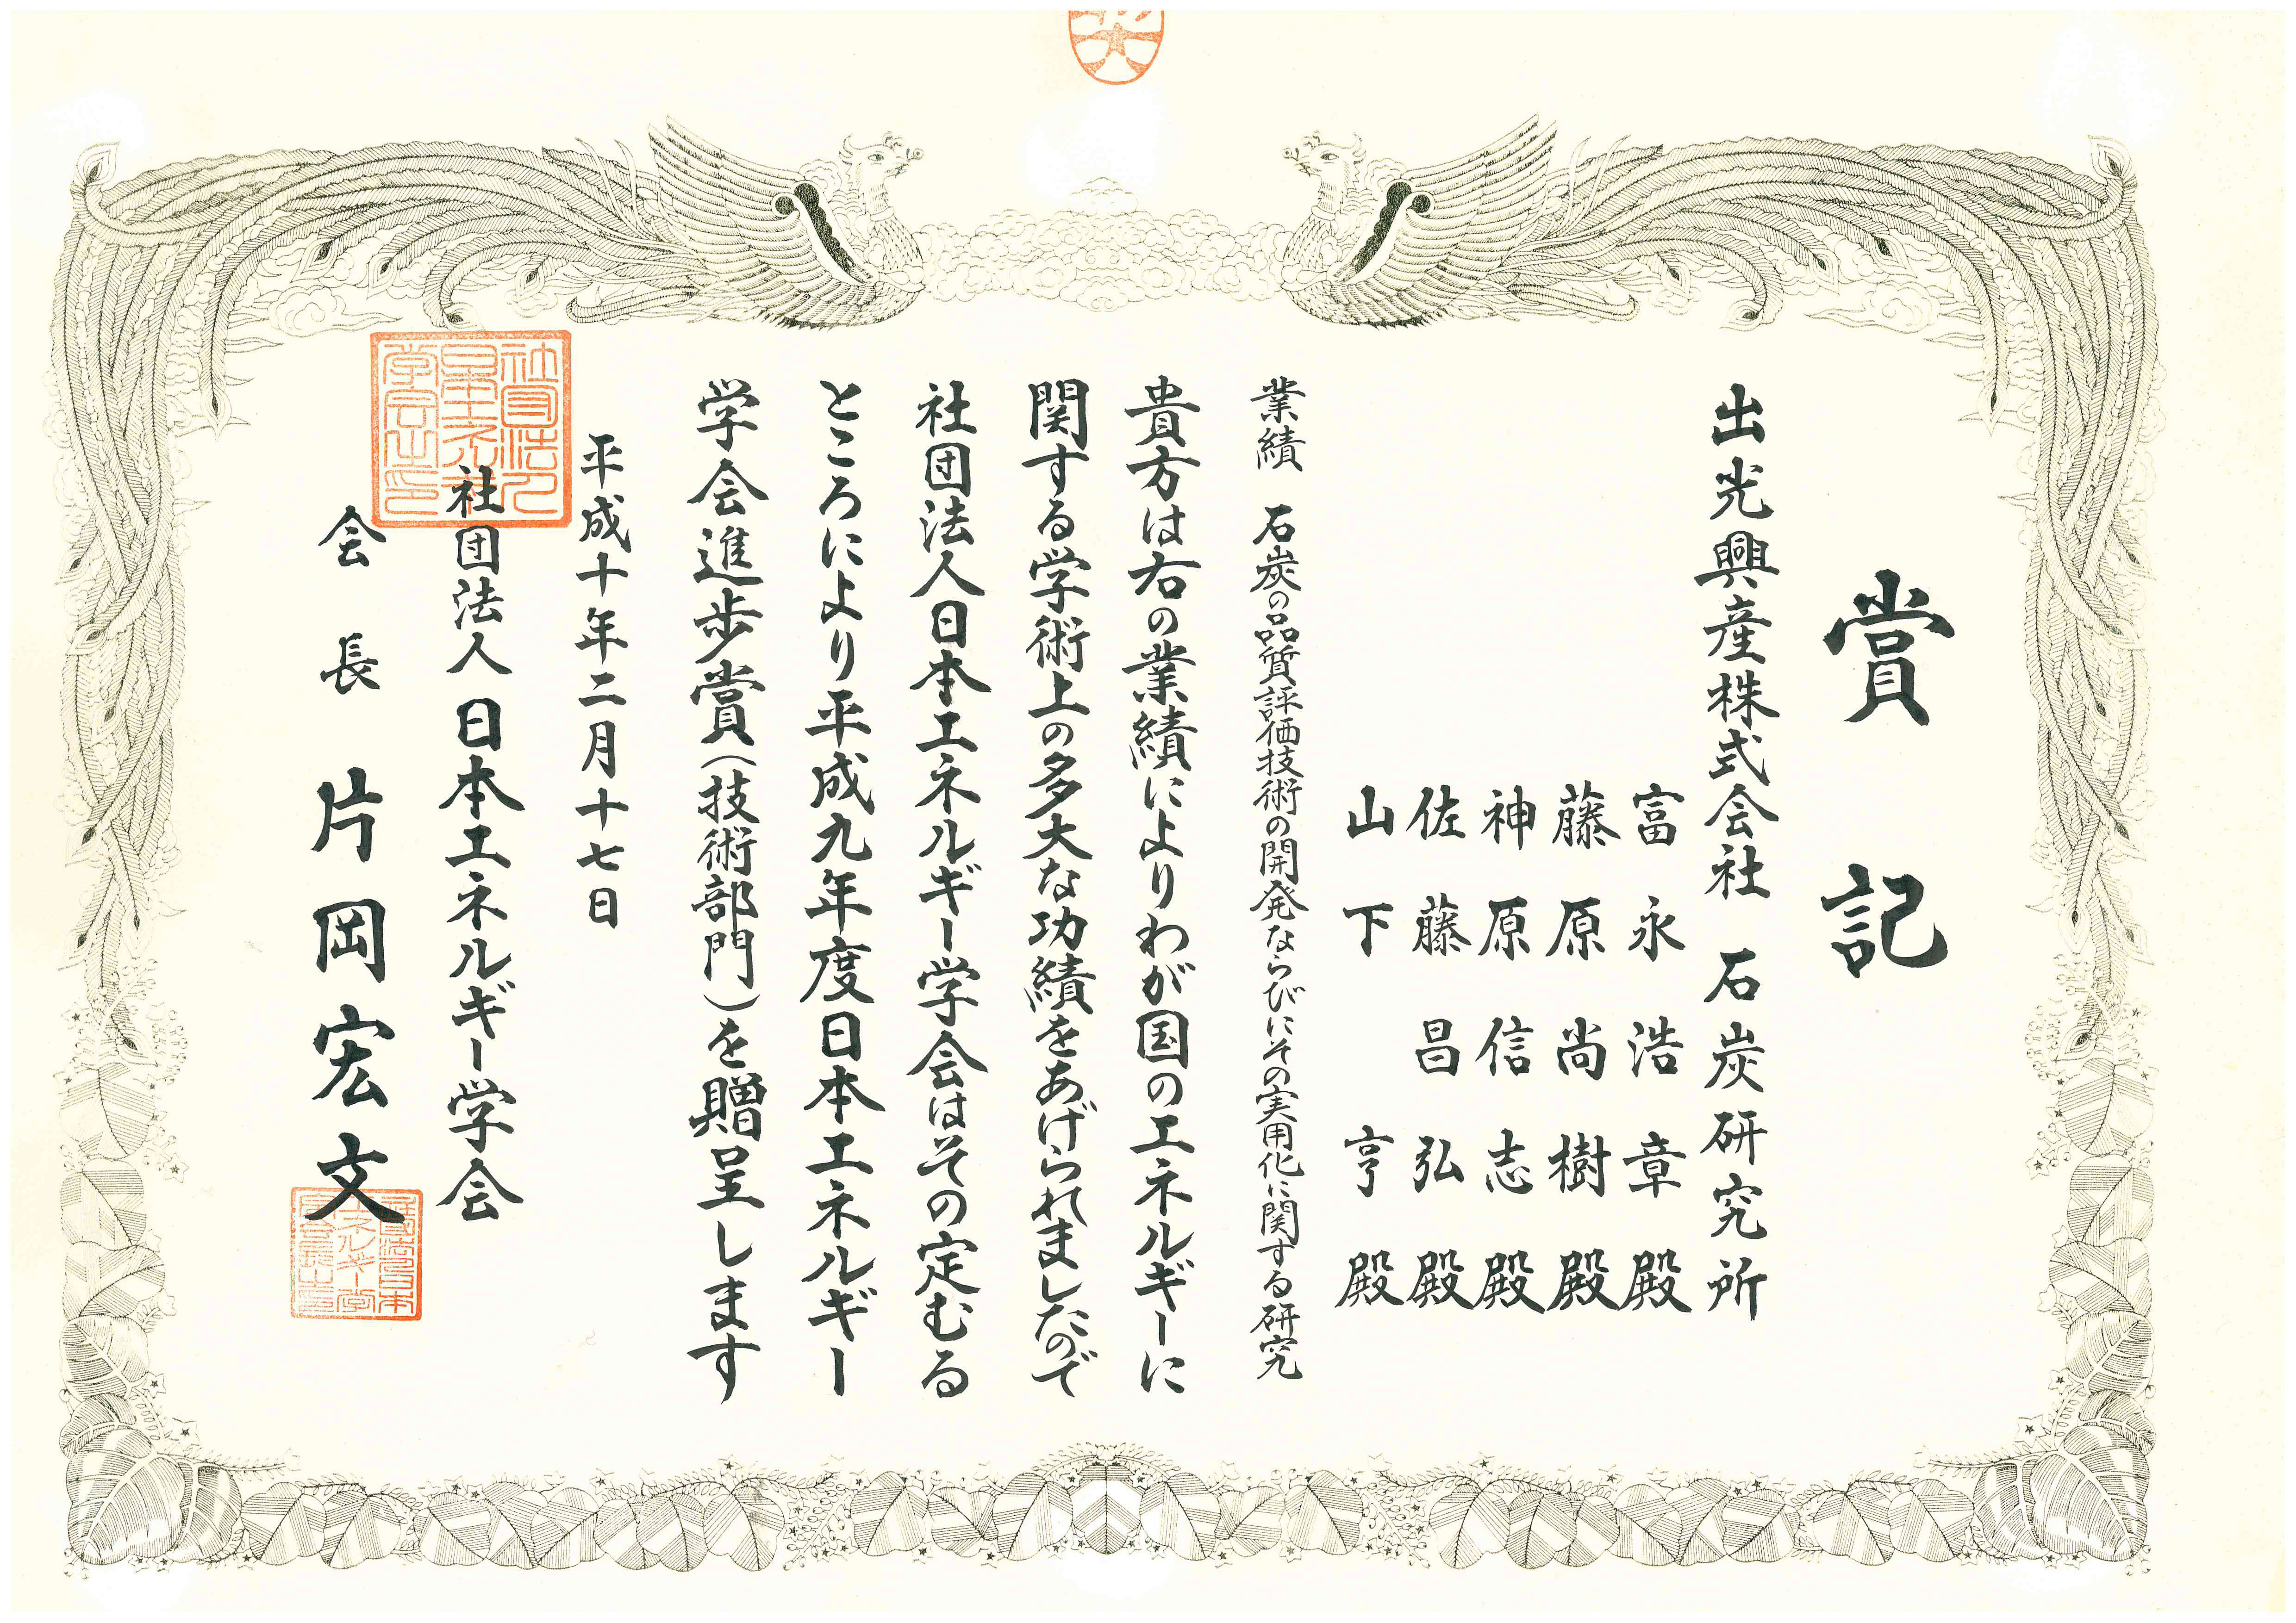 賞記
出光興産株式会社 石炭研究所
富永浩章殿
藤原尚樹殿
神原信志殿
佐藤昌弘殿
山下亨殿
業績 石炭の品質評価技術の開発ならびにその実用化に関する研究
貴方は右の業績によりわが国のエネルギーに
関する学術上の多大な功績をあげられましたので
社団法人日本エネルギー学会はその定むる
ところにより平成九年度日本エネルギー
学会進歩賞(技術部門)を贈呈します
平成十年二月十七日
社団法人日本エネルギー学会
会長 片岡宏文